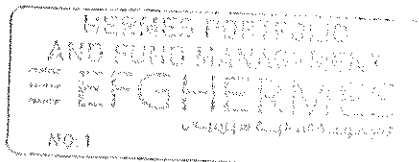 HERMES PORTFOLIO
AND FUND MANAGEMENT
EFGHERMES
NO.1